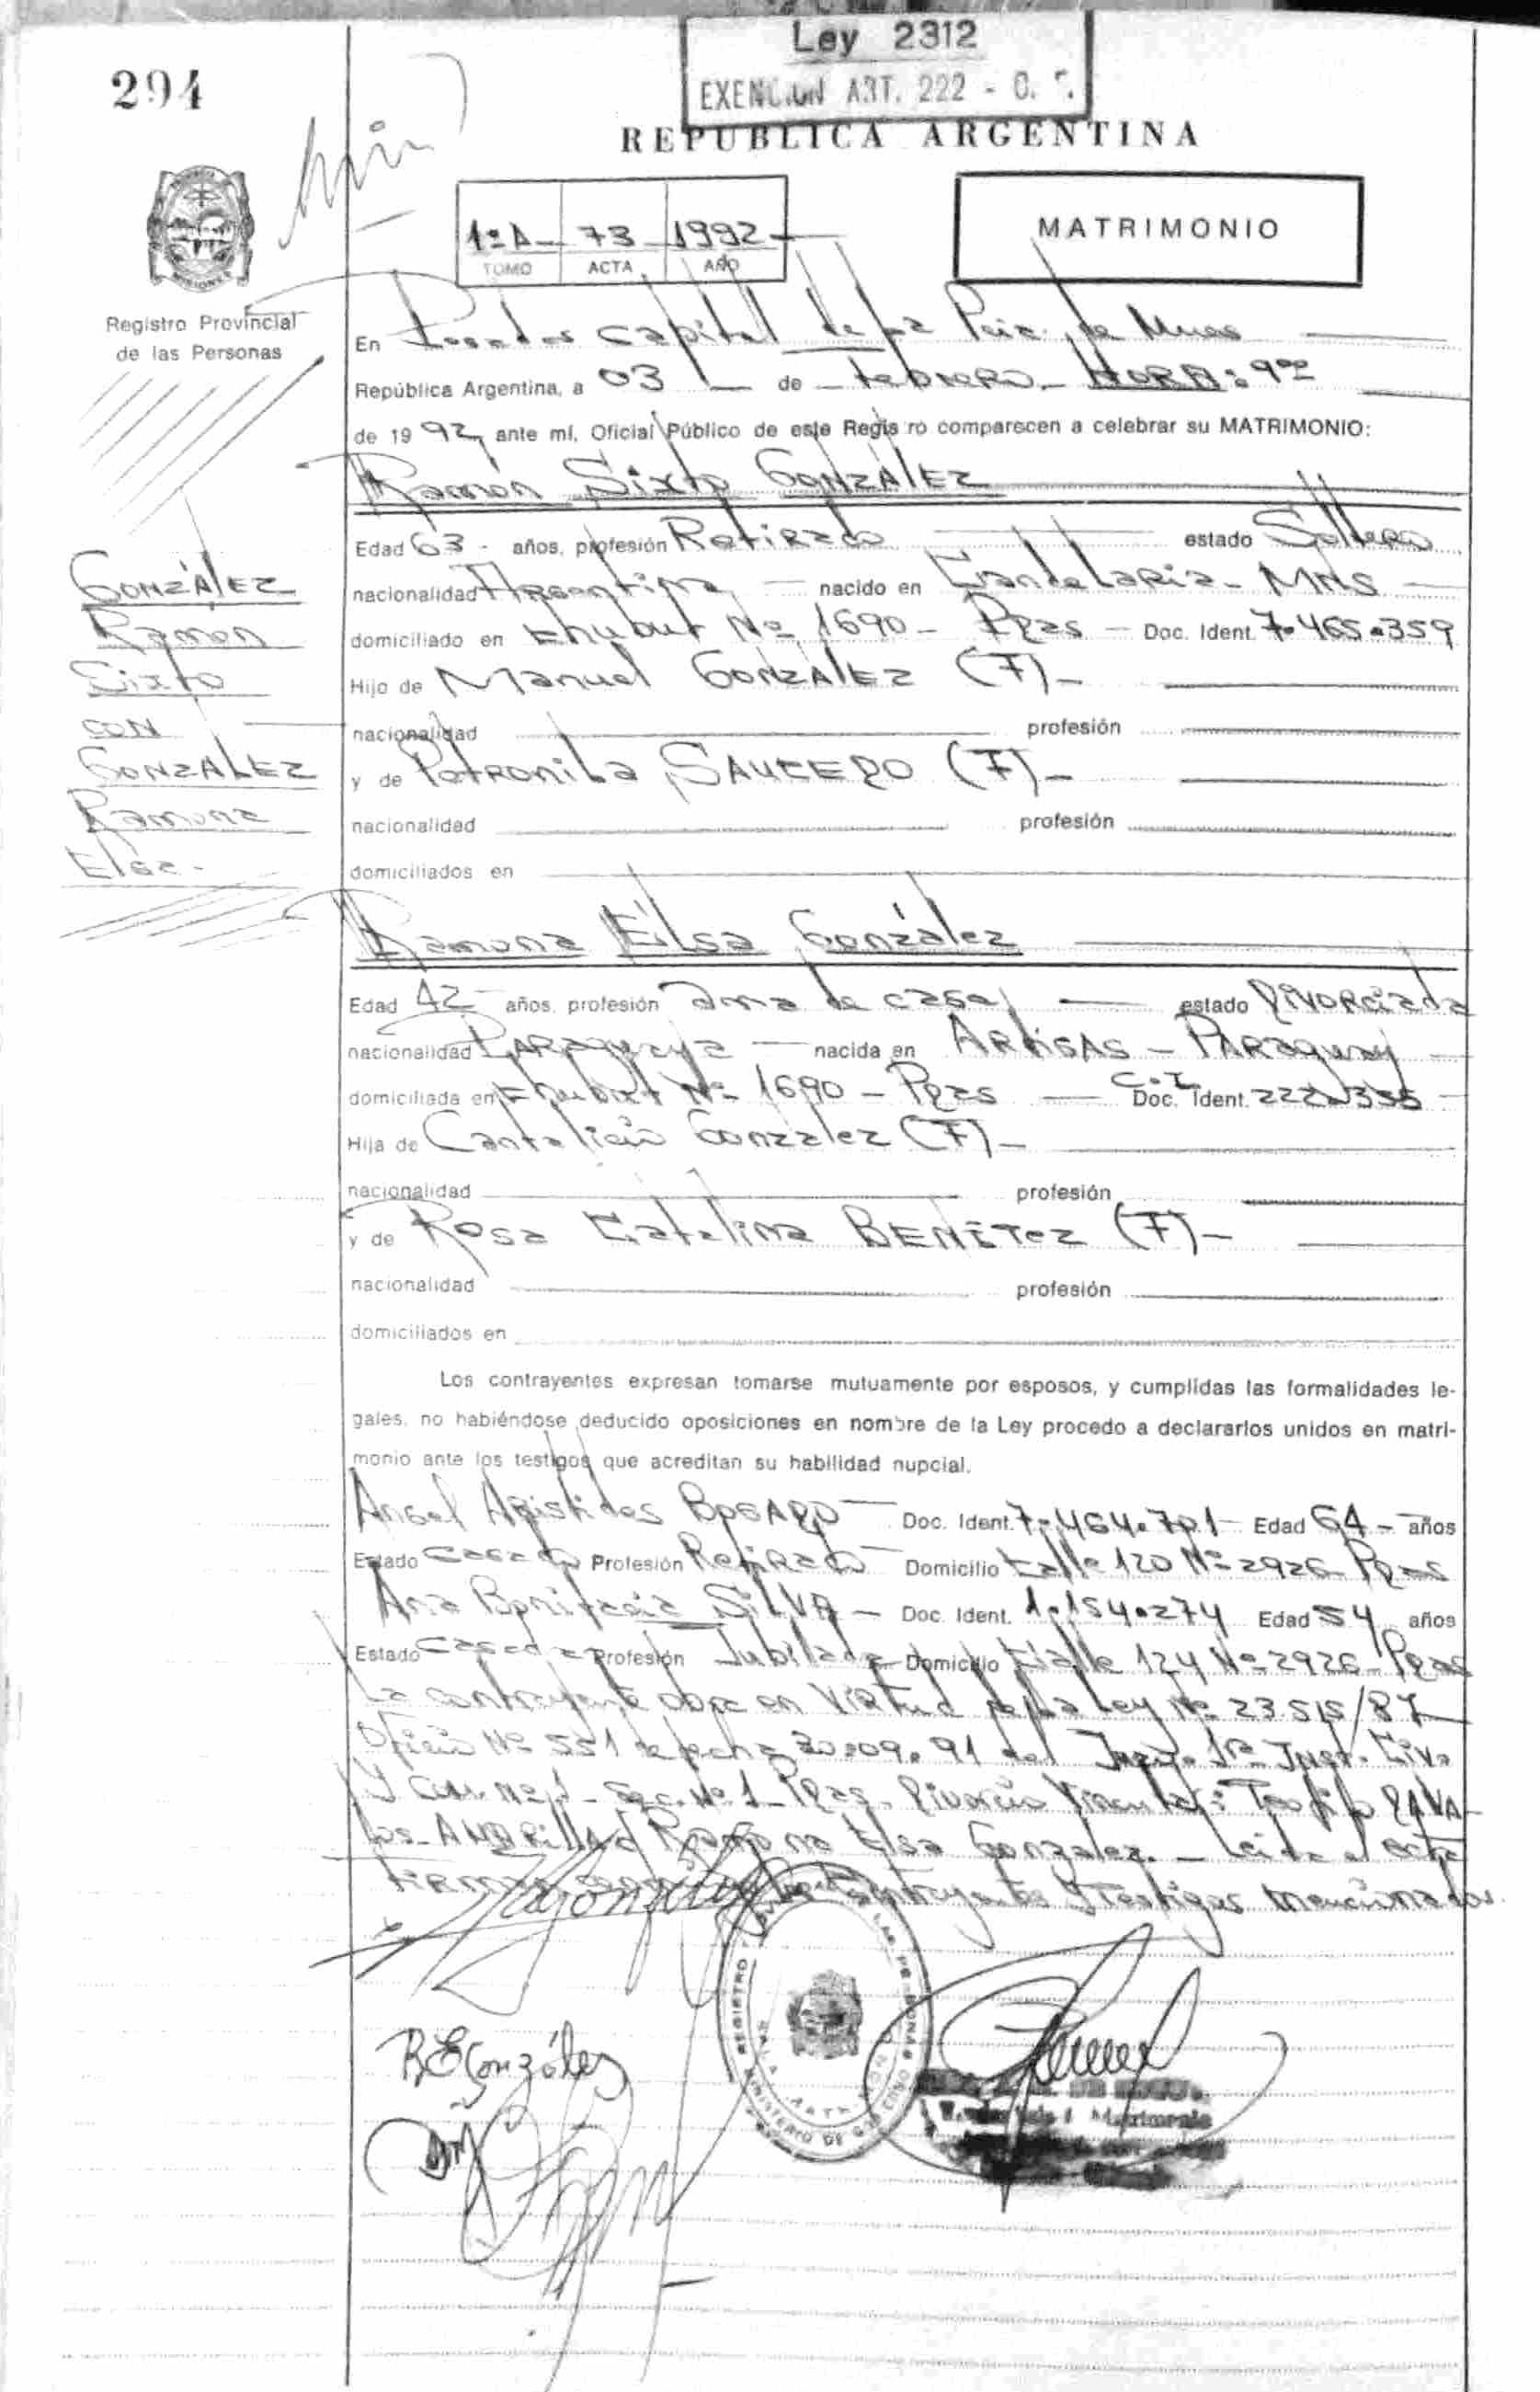 294
Ley 2312
EXENCION ART. 222 - C. F.
REPUBLICA ARGENTINA
1º A 73 1992
TOMO ACTA AÑO
MATRIMONIO
Registro Provincial
de las Personas
En Posadas Capital de la Pcia. de Mnes
República Argentina, a 03 de Febrero HORA: 9 00
de 1992, ante mí, Oficial Público de este Registro comparecen a celebrar su MATRIMONIO:
Ramón Sixto GONZÁLEZ
Edad 63 - años, profesión Retirado estado Soltero
nacionalidad Argentina nacido en Candelaria - MNS
domiciliado en Chubut Nº 1690 - Pdas - Doc. Ident. 7.465.359
Hijo de Manuel GONZÁLEZ (F) -
nacionalidad profesión
y de Petronila SAUCEDO (F) -
nacionalidad profesión
domiciliados en
GONZÁLEZ
Ramón
Sixto
CON
GONZALEZ
Ramona
Elsa.-
Ramona Elsa González
Edad 42 años, profesión ama de casa estado Divorciada
nacionalidad Paraguaya nacida en ARTIGAS - PARAguay
domiciliada en Chubut Nº 1690 - Pdas C.I. Doc. Ident.
Hija de Cantalicio González (F) -
nacionalidad profesión
y de Rosa Catalina BENÍTez (F) -
nacionalidad profesión
domiciliados en
Los contrayentes expresan tomarse mutuamente por esposos, y cumplidas las formalidades le-
gales, no habiéndose deducido oposiciones en nombre de la Ley procedo a declararlos unidos en matri-
monio ante los testigos que acreditan su habilidad nupcial.
Angel Aristides BOGADO Doc. Ident. 7.464.701 - Edad 64 - años
Estado Casado Profesión Retirado Domicilio Calle 120 Nº 2926 Pdas
Ana Bonifacia SILVA - Doc. Ident. 1.154.274 Edad 54 años
Estado Casada Profesión Jubilada Domicilio Calle 124 Nº 2926 - Pdas
La contrayente obra en Virtud de la Ley Nº 23.515/87
Oficio Nº 551 de fecha 20.09.91 del Juzg. 1ra Inst. Civ.
y Com. Nº 1 - Sec. Nº 1 - Pdas. Divorcio Vincular: Teofilo DAVA-
los Ramona Elsa Gonzalez. - Leida el acta
firman contrayentes y testigos mencionados.
R E González